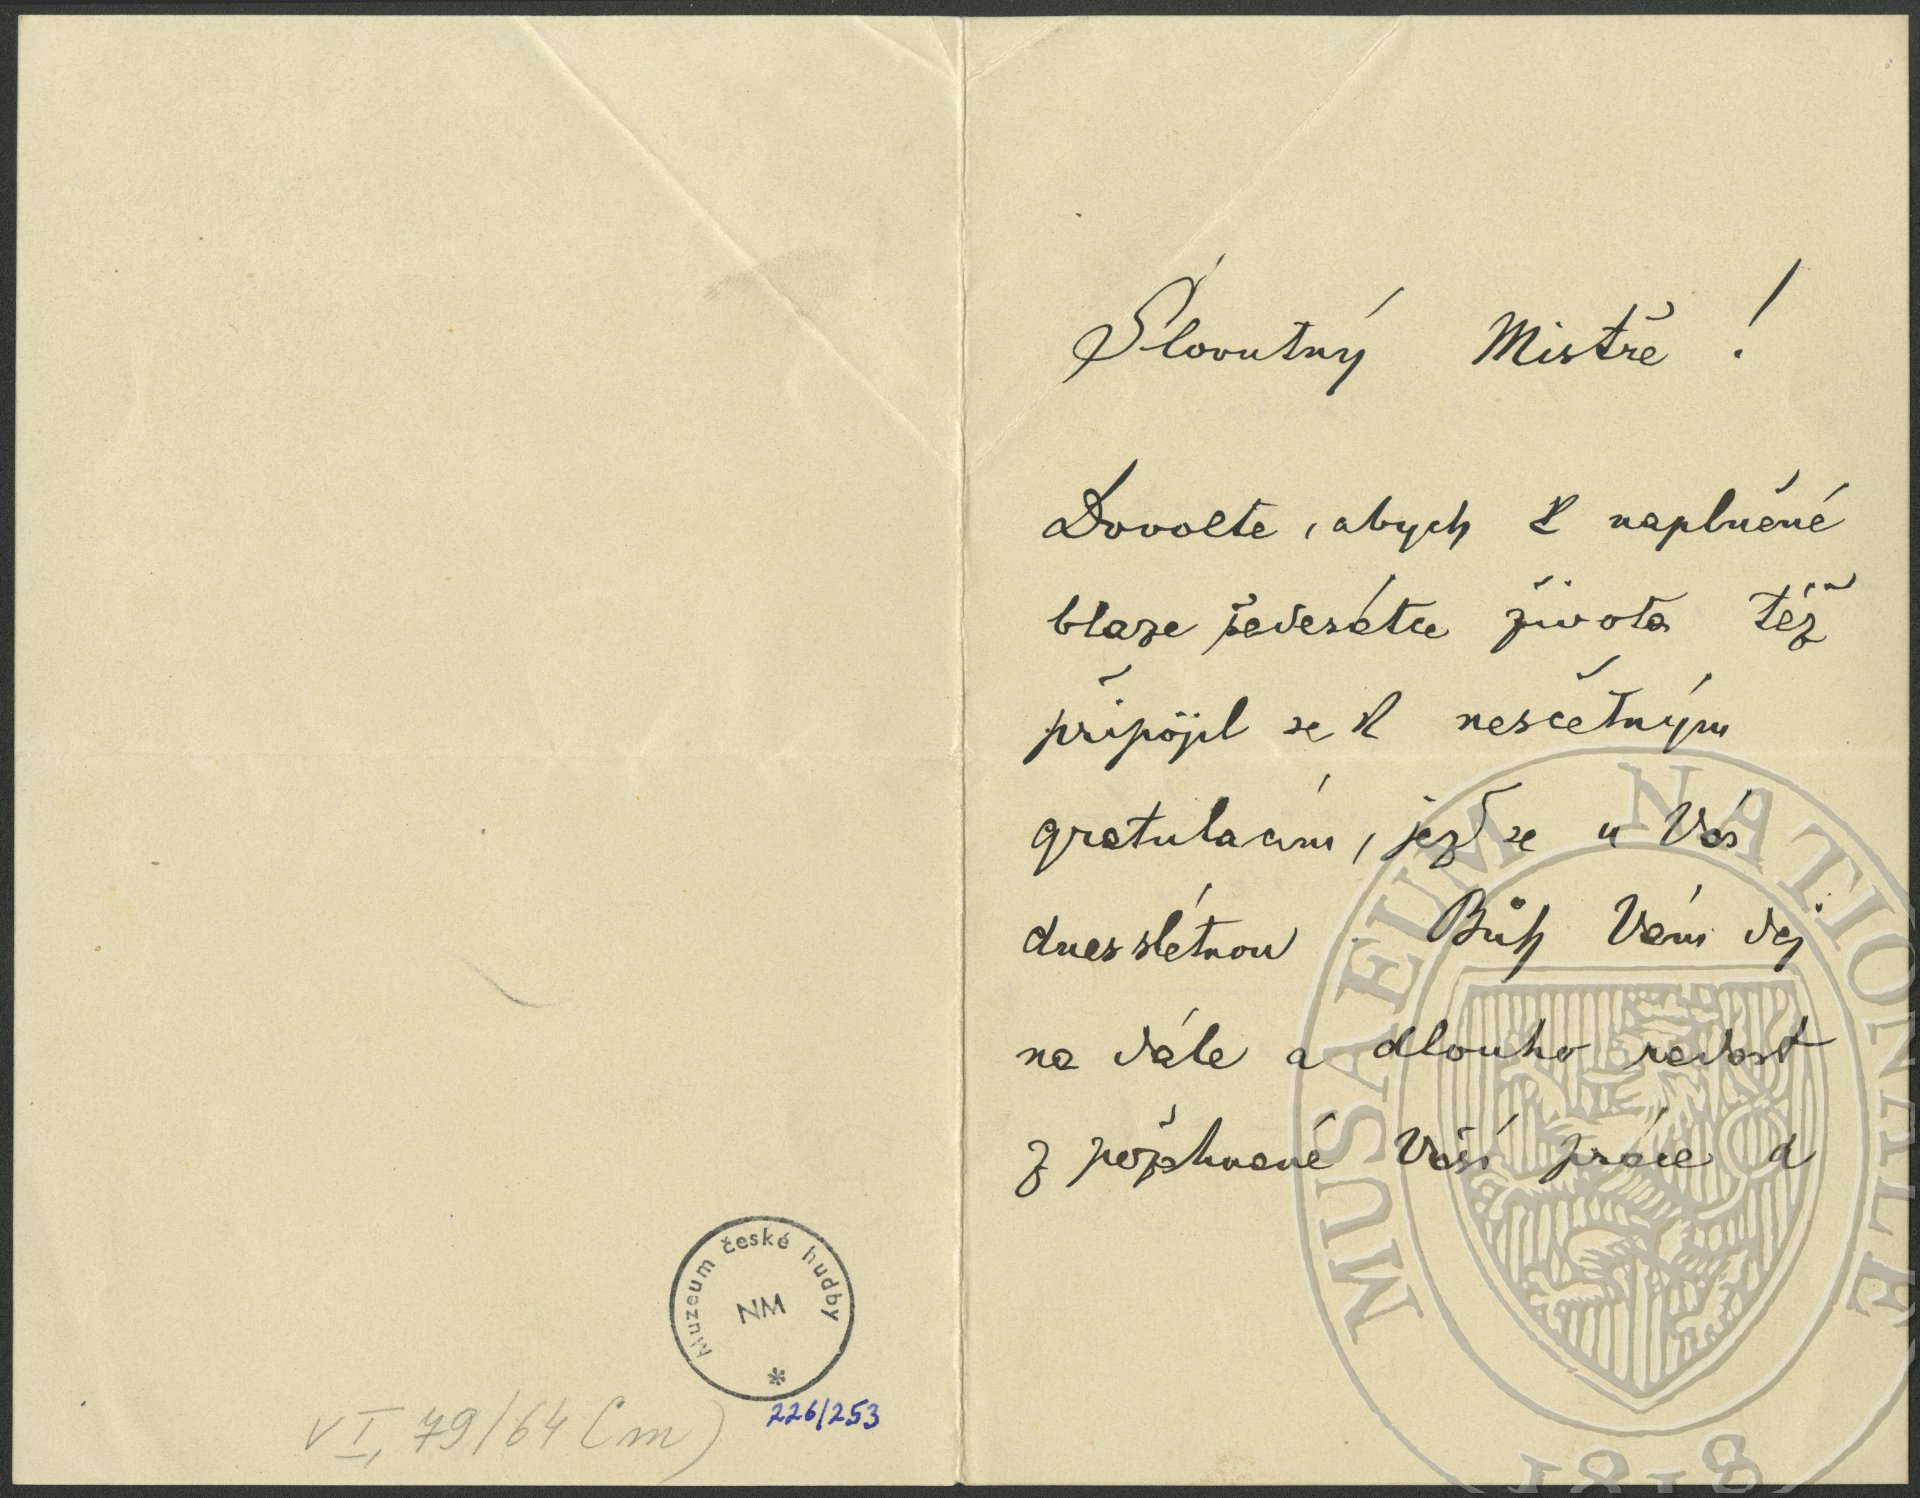 Slovutný Mistře!
Dovolte, abych k naplněné
blaze šedesátce života též
připojil se k nesčetným
gratulacím, jež se u Vás
dnes slétnou. Bůh Vám dej
na dále a dlouho radost
z požehnané Vaší práce a
Muzeum české hudby
NM
226/253
VI, 79/64 (m)
MUSAEUM NATIONALE
1818